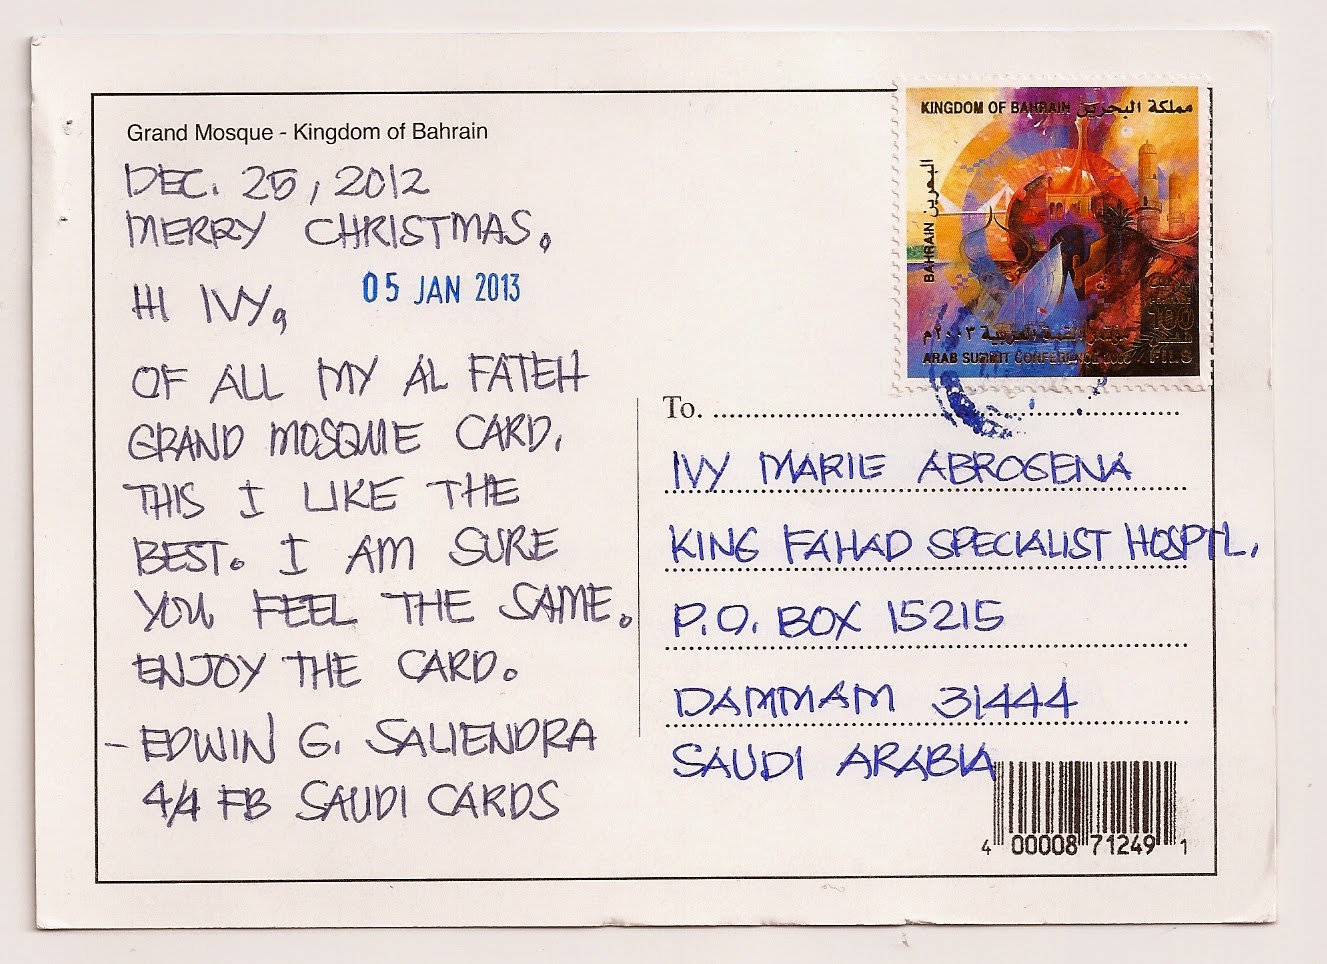 Grand Mosque - Kingdom of Bahrain
DEC. 25, 2012
MERRY CHRISTMAS.
HI IVY,
05 JAN 2013
OF ALL MY AL FATEH
GRAND MOSQUE CARD,
THIS I LIKE THE
BEST. I AM SURE
YOU FEEL THE SAME.
ENJOY THE CARD.
- EDWIN G. SALIENDRA
4/4 FB SAUDI CARDS
KINGDOM OF BAHRAIN مملكة البحرين
BAHRAIN البحرين
القمة العربية ٢٠٠٣م
ARAB SUMMIT CONFERENCE 2003
100
فلس
FILS
To.
IVY MARIE ABROGENA
KING FAHAD SPECIALIST HOSPTL,
P.O. BOX 15215
DAMMAM 31444
SAUDI ARABIA
4 00008 71249 1